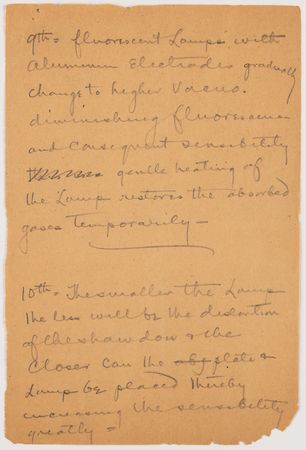 9th = fluorescent Lamps with
Aluminum Electrodes gradually
change to higher Vacuo.
diminishing fluorescence
and consequent sensibility
gentle heating of
the Lamp restores the absorbed
gases Temporarily —
10th = The smaller the Lamp
the less will be the distortion
of the shadow & the
Closer can the obj plate &
Lamp be placed thereby
increasing the sensibility
greatly =